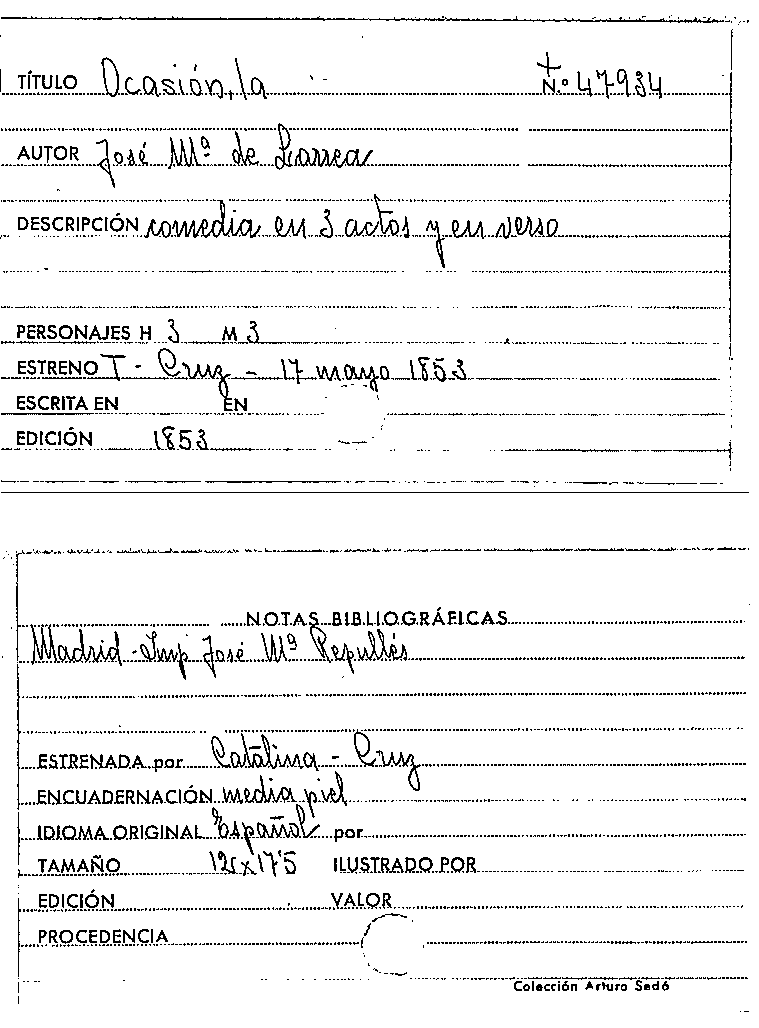 TÍTULO Ocasión, la N.º 47934
AUTOR José Mª de Larrea
DESCRIPCIÓN comedia en 3 actos y en verso
PERSONAJES H 3 M 3
ESTRENO T - Cruz - 17 mayo 1853
ESCRITA EN EN
EDICIÓN 1853
NOTAS BIBLIOGRÁFICAS
Madrid - Imp José Mª Repullés
ESTRENADA por Catalina - Cruz
ENCUADERNACIÓN media piel
IDIOMA ORIGINAL Español por
TAMAÑO ILUSTRADO POR
EDICIÓN VALOR
PROCEDENCIA
Colección Arturo Sedó